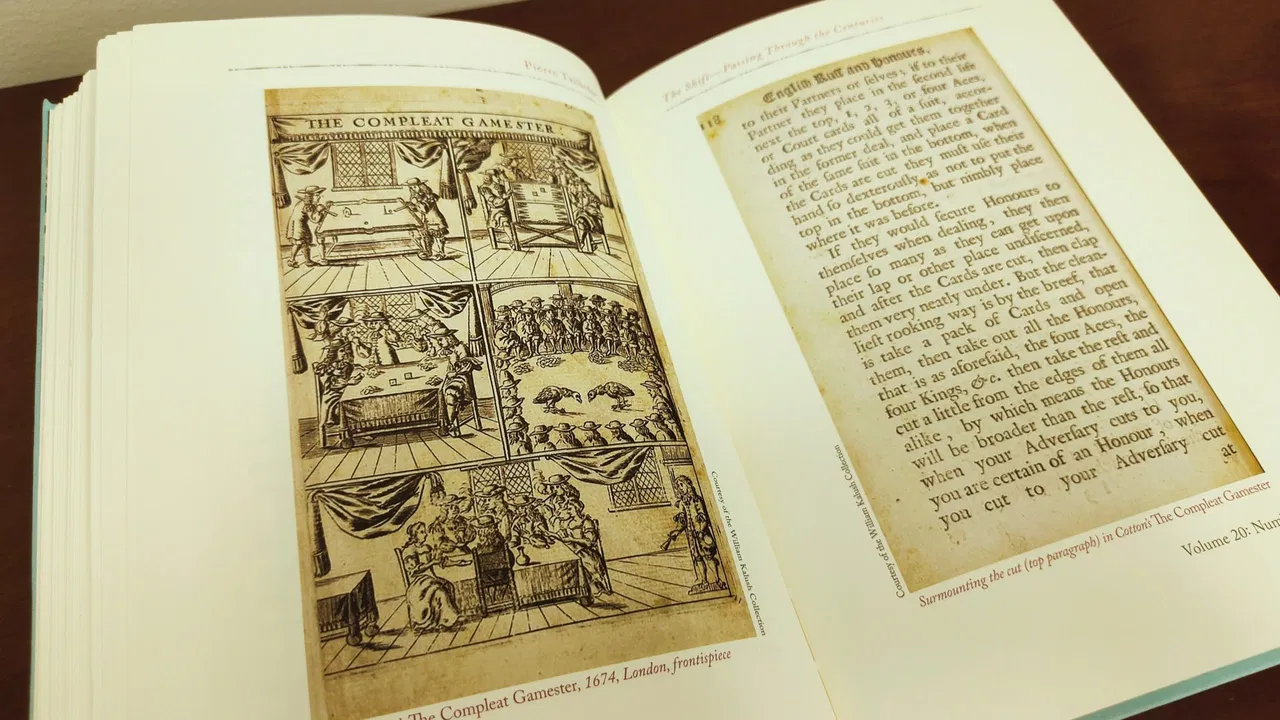 Pierre
THE COMPLEAT GAMESTER:
Courtesy of the William Kalush Collection
The Compleat Gamester, 1674, London, frontispiece
The Shift—Passing Through the Centuries
118
Engliſh Ruff and Honours,
to their Partners or ſelves; if to their
Partner they place in the ſecond liſt
next the top, 1, 2, 3, or four Aces,
or Court cards all of a ſuit, accor-
ding as they could get them together
in the former deal, and place a Card
of the ſame ſuit in the bottom, when
the Cards are cut they muſt uſe their
hand ſo dexterouſly as not to put the
top in the bottom, but nimbly place
where it was before.
If they would ſecure Honours to
themſelves when dealing, they then
place ſo many as they can get upon
their lap or other place undiſcerned,
and after the Cards are cut, then clap
them very neatly under. But the clean-
lieſt rooking way is by the breef, that
is take a pack of Cards and open
them, then take out all the Honours,
that is as aforeſaid, the four Aces, the
four Kings, &c. then take the reſt and
cut a little from the edges of them all
alike, by which means the Honours
will be broader than the reſt, ſo that
when your Adverſary cuts to you,
you are certain of an Honour when
you cut to your Adverſary cut
at
Courtesy of the William Kalush Collection
Surmounting the cut (top paragraph) in Cotton's The Compleat Gamester
Volume 20: